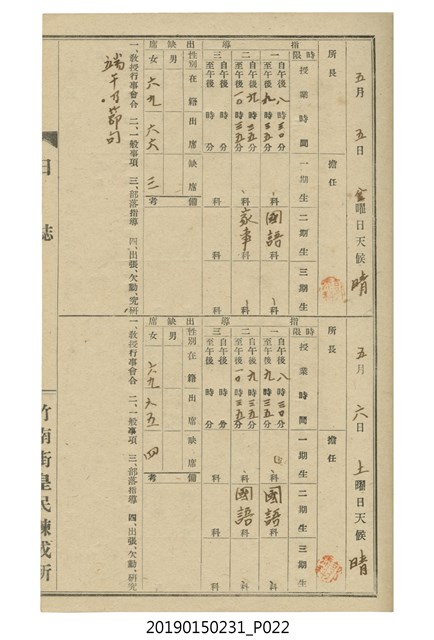 五月 五日 金曜日 天候 晴
所長 擔任
時限 授業時間 一期生 二期生 三期生
指導
一 自午後 八時三〇分 至午後 九時三五分 科 國語科 科
二 自午後 九時三五分 至午後 一〇時三五分 科 家事科 科
三 自午後 時 分 至午後 時 分 科 科 科
出缺席 性別 在籍 出席 缺席 備考
男
女 六九 六六 三
一、教授行事會合 二、一般事項 三、部落指導 四、出張、欠勤、究研
端午乃節句
日誌
五月 六日 土曜日 天候 晴
所長 擔任
時限 授業時間 一期生 二期生 三期生
指導
一 自午後 八時三〇分 至午後 九時三五分 科 國語科 科
二 自午後 九時三五分 至午後 一〇時三五分 科 國語科 科
三 自午後 時 分 至午後 時 分 科 科 科
出缺席 性別 在籍 出席 缺席 備考
男
女 六九 六五 四
一、教授行事會合 二、一般事項 三、部落指導 四、出張、欠勤、研究
竹南街皇民鍊成所
20190150231_P022